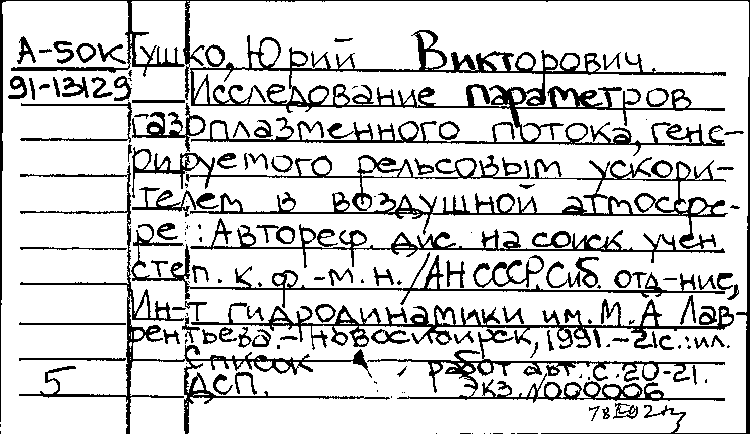 А-50к Гушко, Юрий Викторович.
91-13129 Исследование параметров
газоплазменного потока, гене-
рируемого рельсовым ускори-
телем в воздушной атмосфе-
ре : Автореф. дис. на соиск. учен.
степ. к. ф.-м. н. / АН СССР. Сиб. отд-ние,
Ин-т гидродинамики им. М.А Лав-
рентьева. - Новосибирск, 1991. - 21с. : ил.
Список работ авт.: с. 20-21.
5 ДСП. Экз. N000006